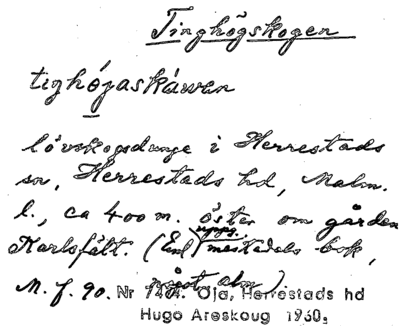 Tinghögskogen
tighójaskáwen
lövskogsdunge i Herrestads
sn, Herrestads hd, Malm.
l., ca 400 m. öster om gården
Karlsfält. (Enl. upps. mestadels bok,
något alm)
M. f. 90. Nr 7404. Öja, Herrestads hd
Hugo Areskoug 1930.